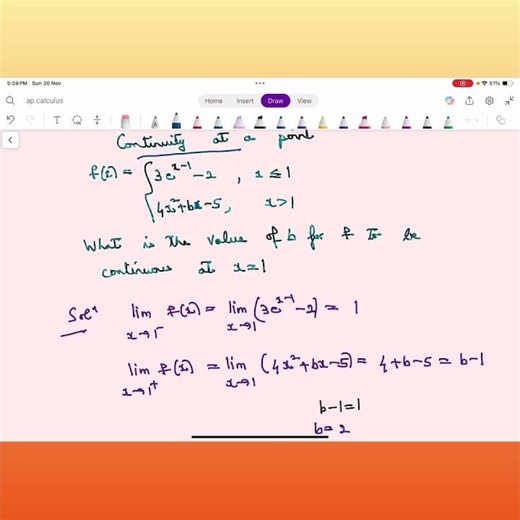 5:59 PM Sun 30 Nov
51%
ap calculus
Home Insert Draw View
Continuity at a point
f(x) = { 3e^(x-1) - 2 , x ≤ 1
4x² + bx - 5, x > 1
What is the value of b for f to be
continuous at x = 1
Solⁿ lim x→1⁻ f(x) = lim x→1 (3e^(x-1) - 2) = 1
lim x→1⁺ f(x) = lim x→1 (4x² + bx - 5) = 4 + b - 5 = b - 1
b - 1 = 1
b = 2